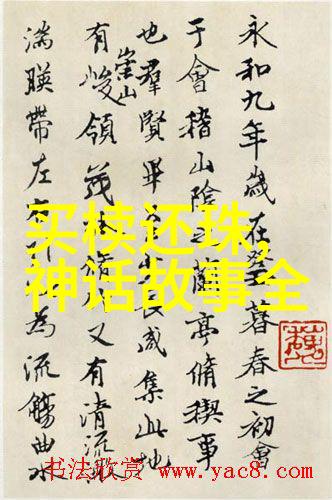 永和九年歲在癸丑暮春之初會
于會稽山陰之蘭亭脩稧事
也羣賢畢至少長咸集此地
有崇山峻領茂林脩竹又有清流激
湍暎帶左右引以為流觴曲水
买椟还珠,
神话故事全
书法欣赏 www.yac8.com